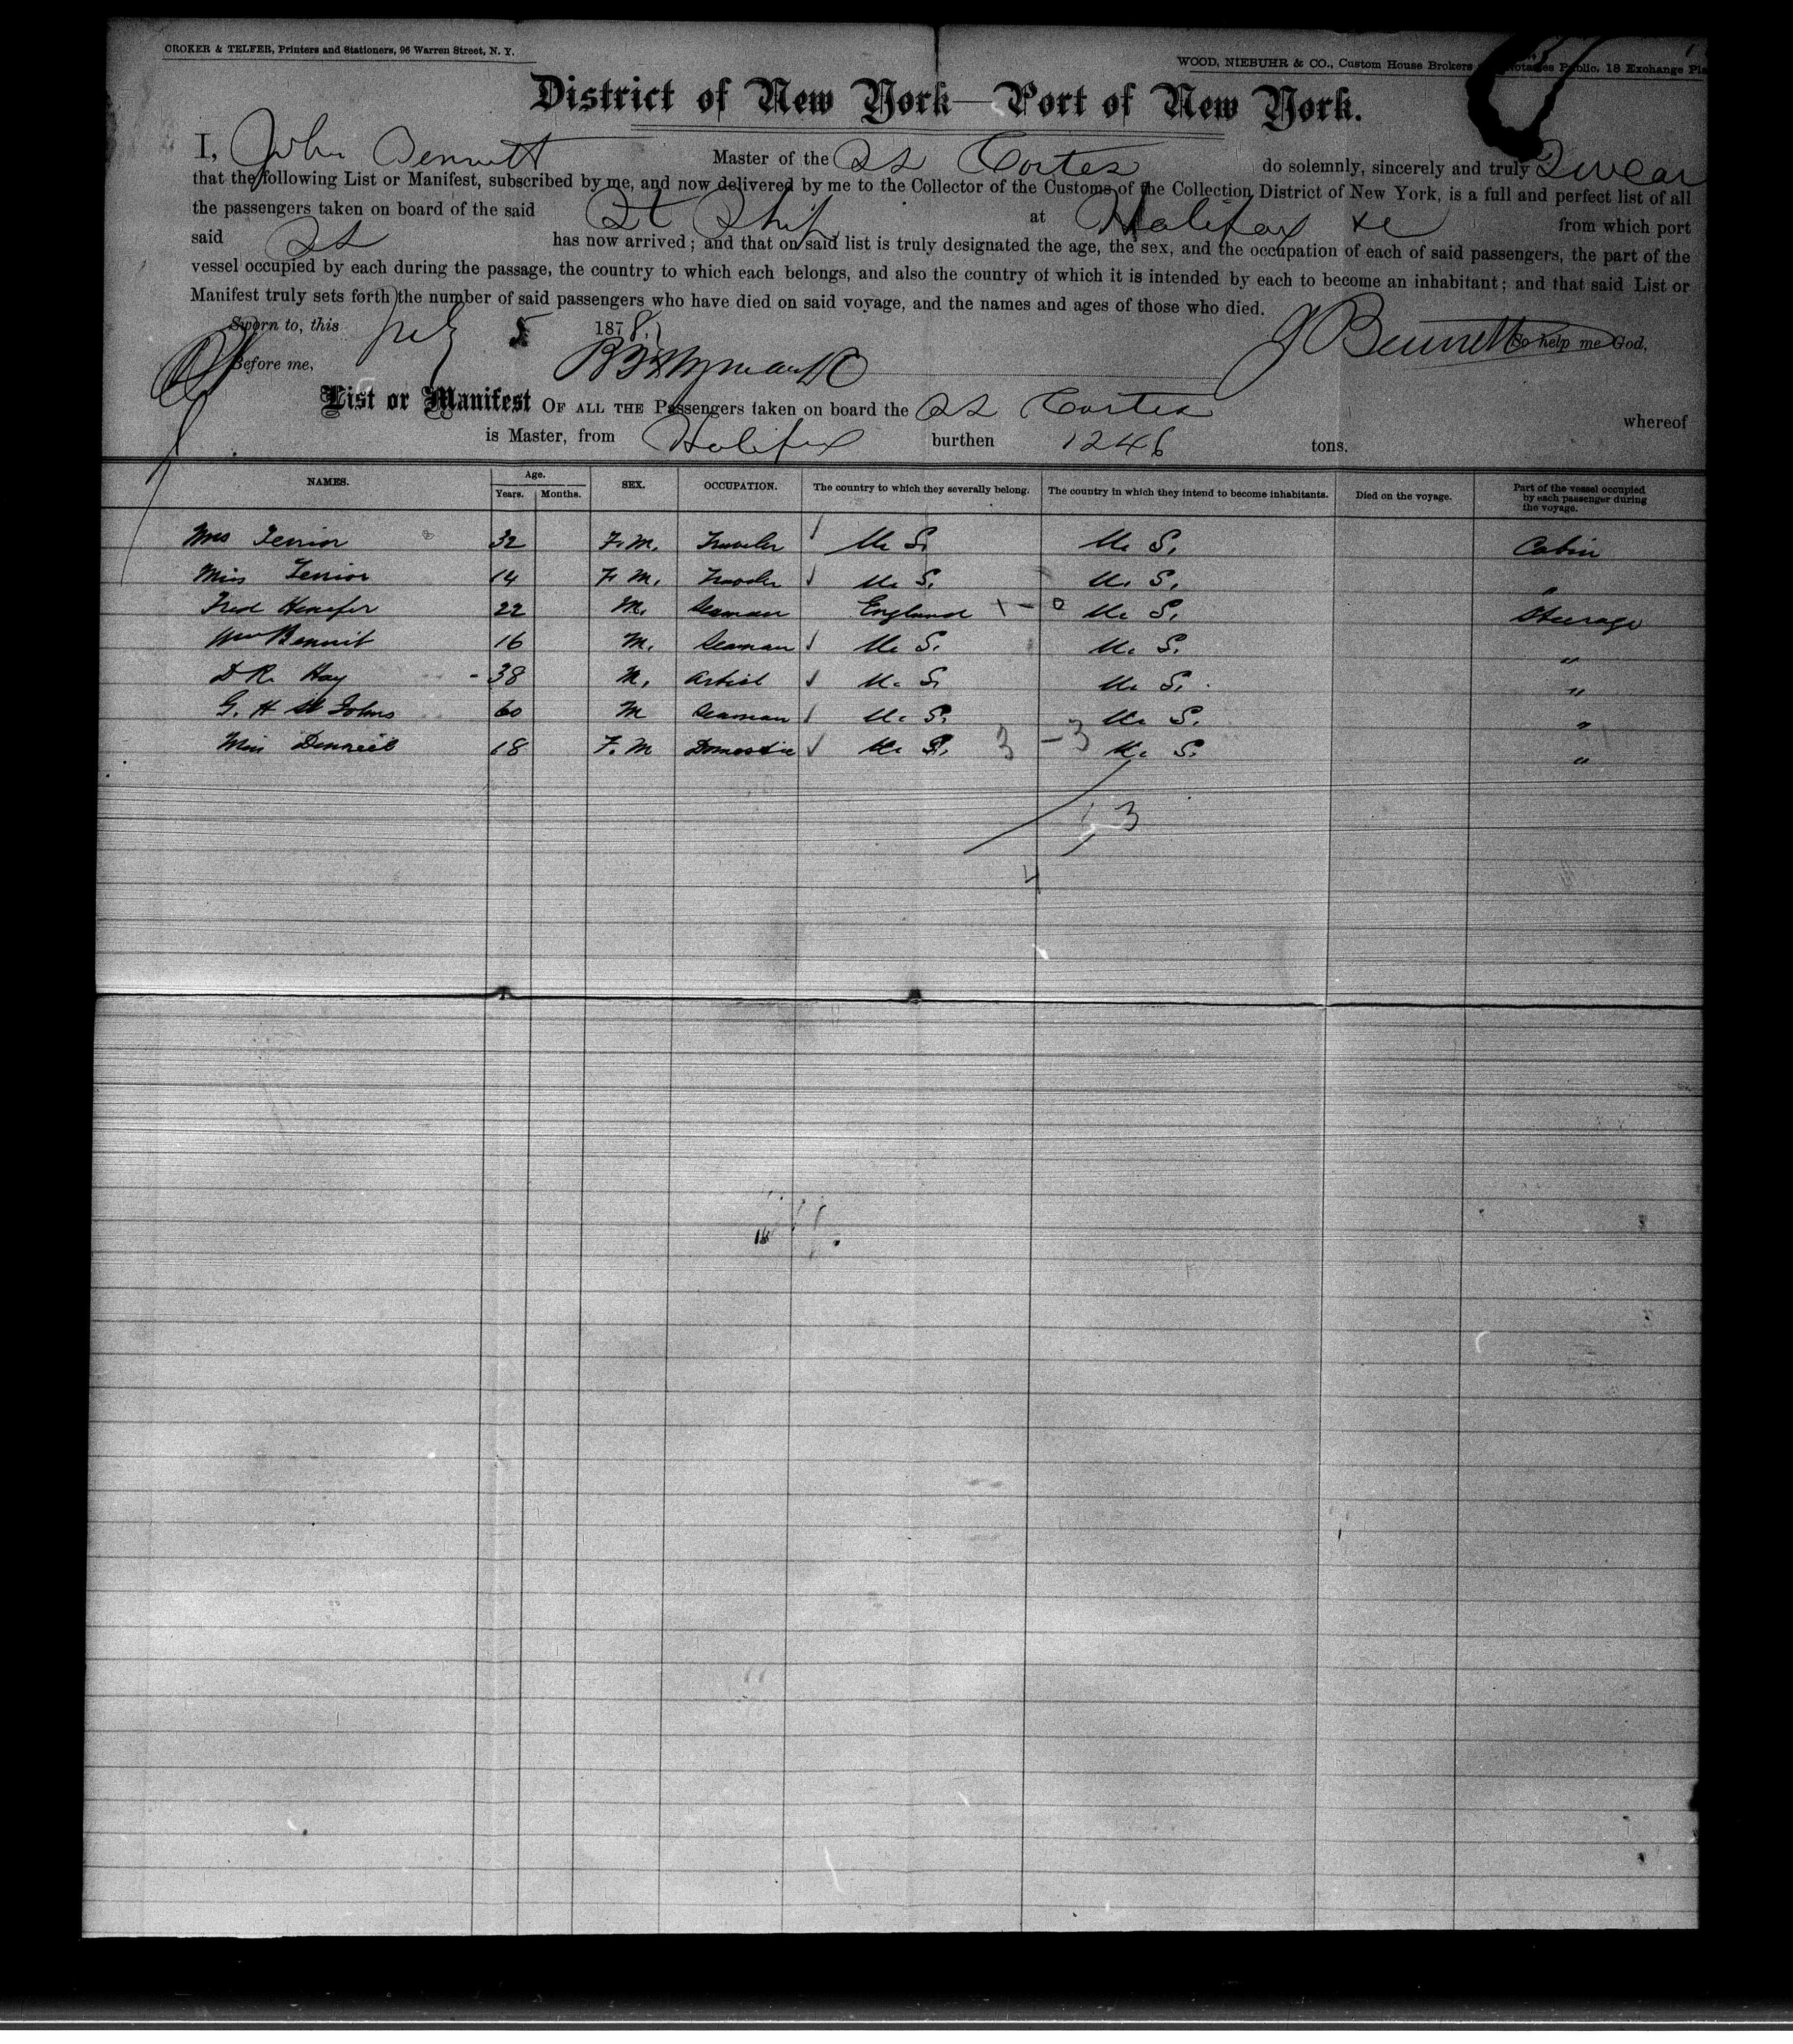 CROKER & TELFER, Printers and Stationers, 96 Warren Street, N. Y.
WOOD, NIEBUHR & CO., Custom House Brokers Notaries Public, 18 Exchange
District of New York—Port of New York.
I, John Bennett Master of the SS Cortes do solemnly, sincerely and truly Swear
that the following List or Manifest, subscribed by me, and now delivered by me to the Collector of the Customs of the Collection District of New York, is a full and perfect list of all
the passengers taken on board of the said St Ship at Halifax from which port
said SS has now arrived; and that on said list is truly designated the age, the sex, and the occupation of each of said passengers, the part of the
vessel occupied by each during the passage, the country to which each belongs, and also the country of which it is intended by each to become an inhabitant; and that said List or
Manifest truly sets forth the number of said passengers who have died on said voyage, and the names and ages of those who died.
Sworn to, this July 5 1878 J Bennett So help me God,
Before me,
List or Manifest OF ALL THE Passengers taken on board the SS Cortes whereof
is Master, from Halifax burthen 1246 tons.
NAMES. Age. Years. Months. SEX. OCCUPATION. The country to which they severally belong. The country in which they intend to become inhabitants. Died on the voyage. Part of the vessel occupied by each passenger during the voyage.
Mrs 32 F. M. Traveler U. S. U. S. Cabin
Miss 14 F. M. Traveler U. S. U. S. "
Fred 22 M. Seaman England U. S. Steerage
Wm Bennit 16 M. Seaman U. S. U. S. "
D R. Hay 38 M. Artist U. S. U. S. "
G. H St Johns 60 M Seaman U. S. U. S. "
Miss 18 F. M Domestic U. S. 3 - 3 U. S. "
3
4